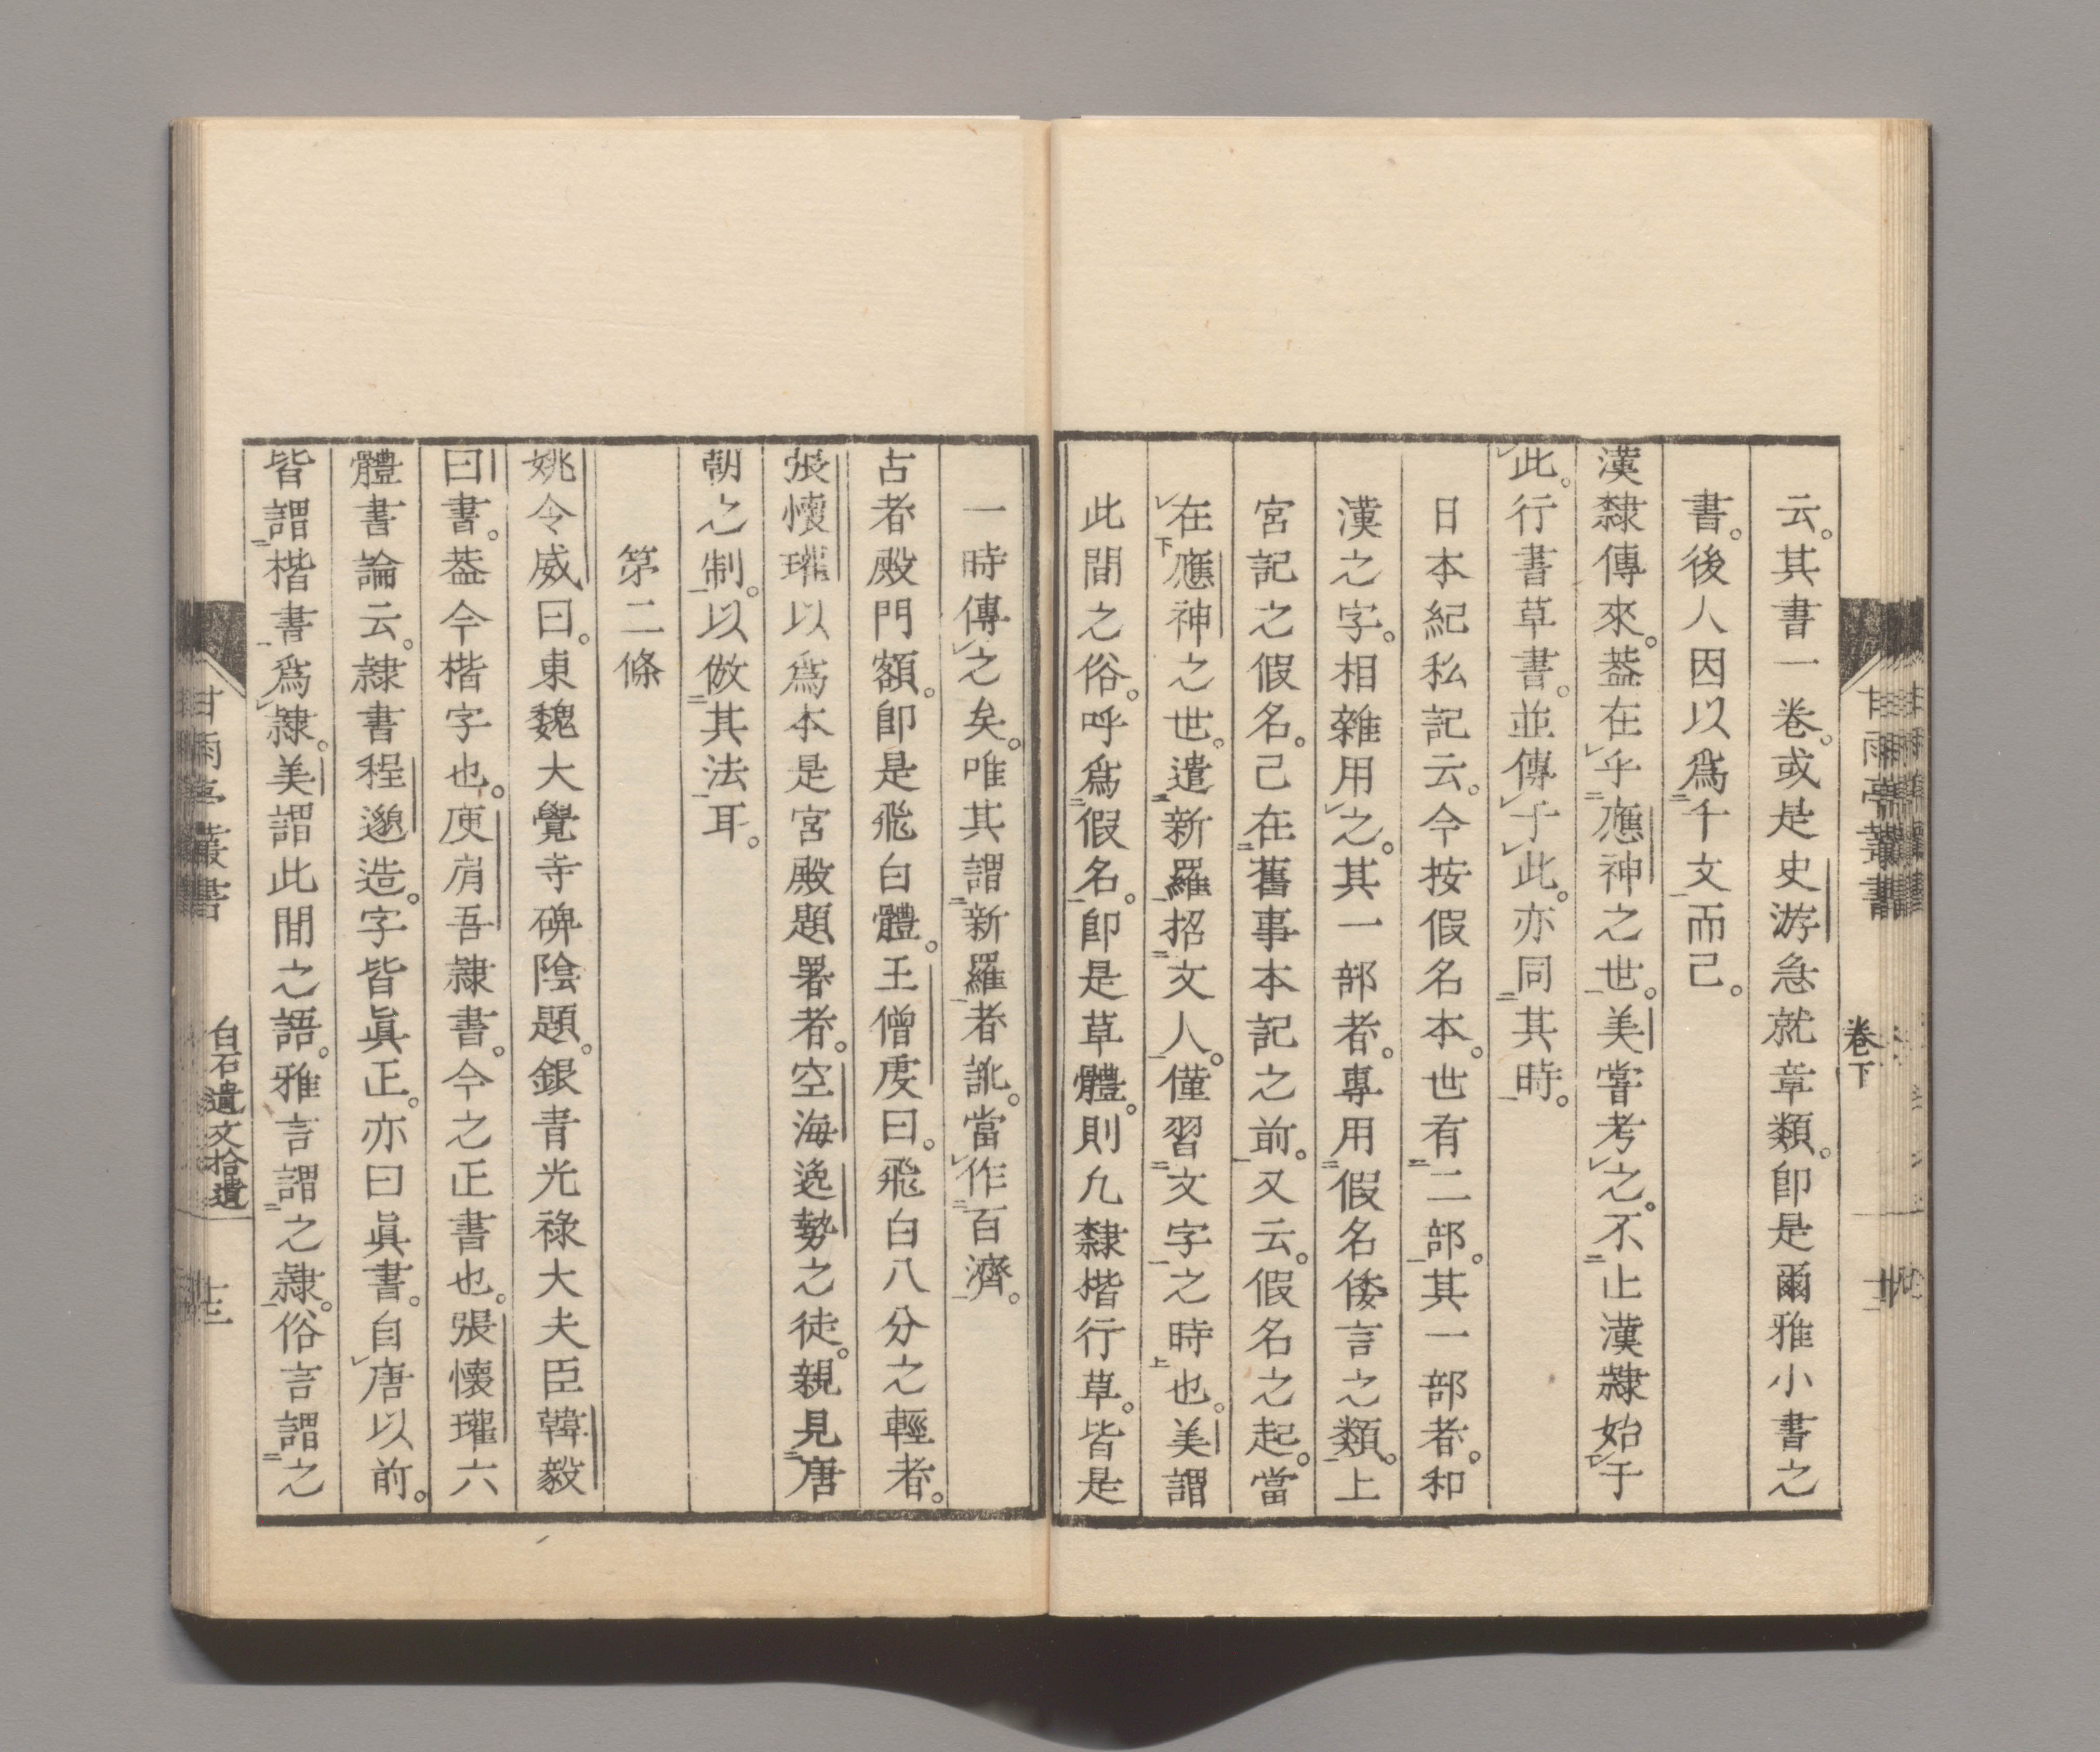 云。其書一卷。或是史游急就章類。卽是爾雅小書之
書。後人因以爲千文而已。
漢隸傳來。葢在乎應神之世。美嘗考之。不止漢隸始于
此。行書草書。並傳于此。亦同其時。
日本紀私記云。今按假名本。也有二部。其一部者。和
漢之字。相雜用之。其一部者。專用假名倭言之類。上
宮記之假名。已在舊事本記之前。又云。假名之起。當
在應神之世。遣新羅招文人。僅習文字之時也。美謂
此間之俗。呼爲假名。卽是草體。則凡隸楷行草。皆是
卷下
甘雨亭叢書
一時傳之矣。唯其謂新羅者訛。當作百濟。
古者殿門額。卽是飛白體。王僧虔曰。飛白八分之輕者。
張懷瓘以爲本是宮殿題署者。空海逸勢之徒。親見唐
朝之制。以倣其法耳。
第二條
姚令威曰。東魏大覺寺碑陰題。銀青光祿大夫臣韓毅
曰書。葢今楷字也。庾肩吾隷書。今之正書也。張懷瓘六
體書論云。隷書程邈造。字皆眞正。亦曰眞書。自唐以前。
皆謂楷書爲隷。美謂此間之語。雅言謂之隷。俗言謂之
甘雨亭叢書
白石遺文拾遺